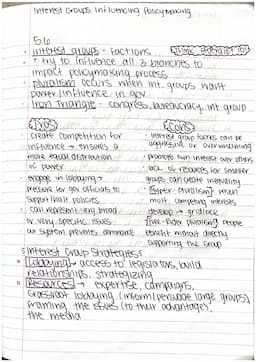 Interest Groups Influencing Policymaking
5.6
• interest groups - factions (Think, Federalist 10)
• ↑ try to influence all 3 branches to
impact policymaking process
pluralism occurs when int. groups want
power/influence in gov
Iron Triangle - congress, bureaucracy, int. group
PROS
create competition for
influence → ensures a
more equal distribution
of power
engage in lobbying →
pressure for gov officials to
support/halt policies
can represent very broad
or very specific issues
our system prevents dominance
CONS
• interest group tactics can be
aggressive or overwhelming
• promote own interest over others
• lack of resources for smaller
groups can create inequality
• hyper-pluralism when
mult. competing interests
develop → gridlock
• free-rider problem people
benefit without directly
supporting the group
Interest Group Strategies:
Lobbying → access to legislators, build
relationships, strategizing
Resources → expertise, campaigns,
Grassroot lobbying (inform/persuade large groups),
framing the issues (to their advantage),
the media